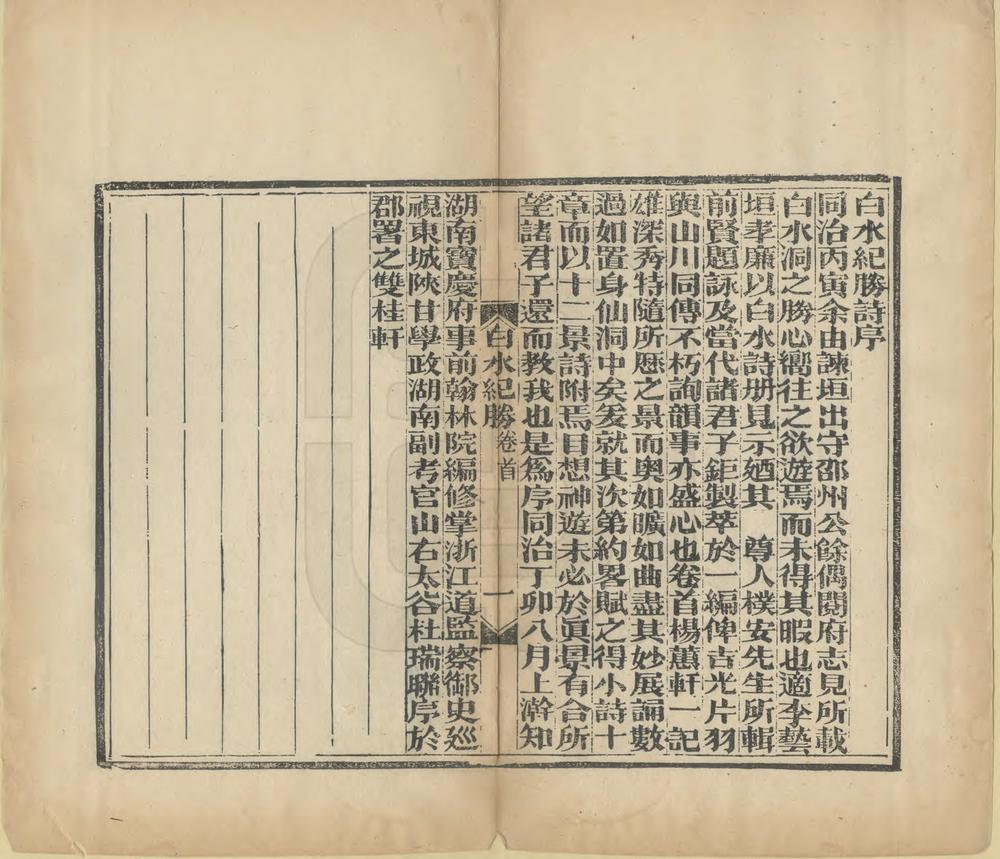 白水紀勝詩序
同治丙寅余由諫垣出守邵州公餘偶閱府志見所載
白水洞之勝心嚮往之欲遊焉而未得其暇也適李藝
垣孝廉以白水詩册見示廼其　尊人樸安先生所輯
前賢題詠及當代諸君子鉅製萃於一編俾吉光片羽
與山川同傳不朽詢韻事亦盛心也卷首楊蕙軒一記
雄深秀特隨所歷之景而奥如曠如曲盡其妙展誦數
過如置身仙洞中矣爰就其次第約畧賦之得小詩十
章而以十二景詩附焉目想神遊未必於眞景有合所
望諸君子還而教我也是爲序同治丁卯八月上澣知
白水紀勝 卷首 一
湖南寶慶府事前翰林院編修掌浙江道監察御史巡
視東城陝甘學政湖南副考官山右太谷杜瑞聯序於
郡署之雙桂軒